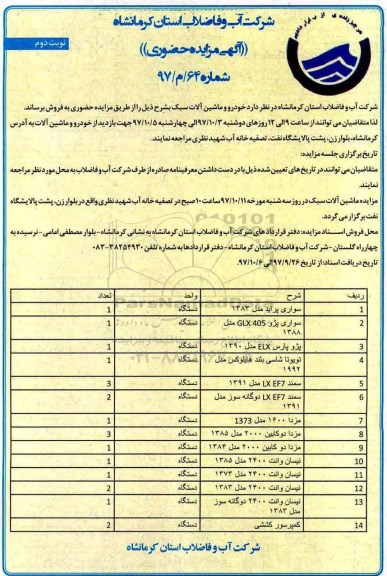 شرکت آب و فاضلاب استان کرمانشاه
نوبت دوم
((آگهی مزایده حضوری))
شماره ۶۴/م/۹۷
شرکت آب و فاضلاب استان کرمانشاه در نظر دارد خودرو و ماشین آلات سبک بشرح ذیل را از طریق مزایده حضوری به فروش برساند.
لذا متقاضیان می توانند از ساعت ۹ الی ۱۲ روزهای دوشنبه ۹۷/۱۰/۳ الی چهارشنبه ۹۷/۱۰/۵ جهت بازدید از خودرو و ماشین آلات به آدرس
کرمانشاه، بلوار زن، پشت پالایشگاه نفت، تصفیه خانه آب شهید نظری مراجعه نمایند.
تاریخ برگزاری جلسه مزایده:
متقاضیان می توانند در تاریخ های تعیین شده ذیل با در دست داشتن معرفینامه صادره از طرف شرکت آب و فاضلاب به محل مورد نظر مراجعه
نمایند.
مزایده ماشین آلات سبک در روز سه شنبه مورخه ۹۷/۱۰/۱۱ ساعت ۱۰ صبح در تصفیه خانه آب شهید نظری واقع در بلوار زن، پشت پالایشگاه
نفت برگزار می گردد.
محل فروش اسناد مزایده: دفتر قراردادهای شرکت آب و فاضلاب استان کرمانشاه به نشانی کرمانشاه- بلوار مصطفی امامی- نرسیده به
چهارراه گلستان- شرکت آب و فاضلاب استان کرمانشاه- دفتر قراردادها به شماره تلفن ۳۸۲۵۴۹۳۰-۰۸۳
تاریخ دریافت اسناد: از تاریخ ۹۷/۹/۲۶ الی ۹۷/۱۰/۶
ردیف شرح واحد تعداد
1 سواری پراید مدل ۱۳۸۳ دستگاه 1
2 سواری پژو GLX 405 مدل ۱۳۸۸ دستگاه 1
3 پژو پارس ELX مدل ۱۳۹۰ دستگاه 1
4 تویوتا شاسی بلند هایلوکس مدل ۱۹۹۲ دستگاه 1
5 سمند LX EF7 مدل ۱۳۹۱ دستگاه 3
6 سمند LX EF7 دوگانه سوز مدل ۱۳۹۱ دستگاه 2
7 مزدا ۱۶۰۰ مدل 1373 دستگاه 1
8 مزدا دوکابین ۲۰۰۰ مدل ۱۳۸۵ دستگاه 3
9 مزدا دو کابین ۲۰۰۰ مدل ۱۳۸۴ دستگاه 1
10 نیسان وانت ۲۴۰۰ مدل ۱۳۸۵ دستگاه 1
11 نیسان وانت ۲۴۰۰ مدل ۱۳۷۳ دستگاه 1
12 نیسان وانت ۲۴۰۰ مدل ۱۳۸۳ دستگاه 2
13 نیسان وانت ۲۴۰۰ دوگانه سوز مدل ۱۳۸۳ دستگاه 1
14 کمپرسور کششی دستگاه 2
شرکت آب و فاضلاب استان کرمانشاه